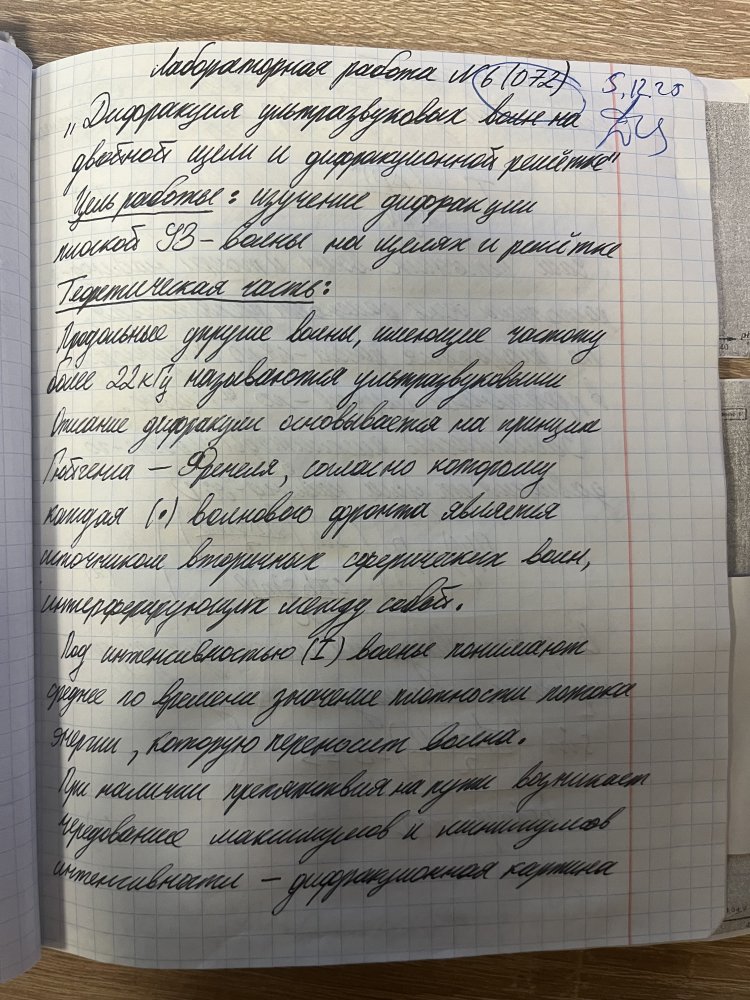 Лабораторная работа №6 (072) 5.12.25
"Дифракция ультразвуковых волн на
двойной щели и дифракционной решётке"
Цель работы: изучение дифракции
плоской УЗ-волны на щелях и решётке
Теоретическая часть:
Продольные упругие волны, имеющие частоту
более 22кГц называются ультразвуковыми
Описание дифракции основывается на принципе
Гюйгенса - Френеля, согласно которому
каждая (•) волнового фронта является
источником вторичных сферических волн,
интерферирующих между собой.
Под интенсивностью (I) волны понимают
среднее по времени значение плотности потока
энергии, которую переносит волна.
При наличии препятствия на пути возникает
чередование максимумов и минимумов
интенсивности - дифракционная картина